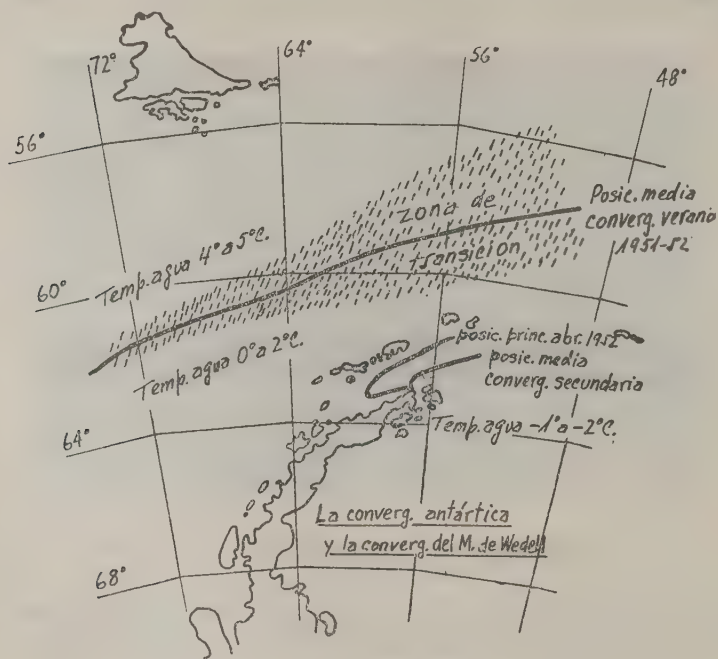 72°
64°
56°
48°
56°
Zona de
transición
Posic. media
converg. verano
1951-52
Temp. agua 4° a 5°C.
60°
Temp. agua 0° a 2°C.
posic. princ. abr. 1952
posic. media
converg. secundaria
64°
Temp. agua -1° a -2°C.
La converg. antártica
y la converg. del M. de Wedell
68°